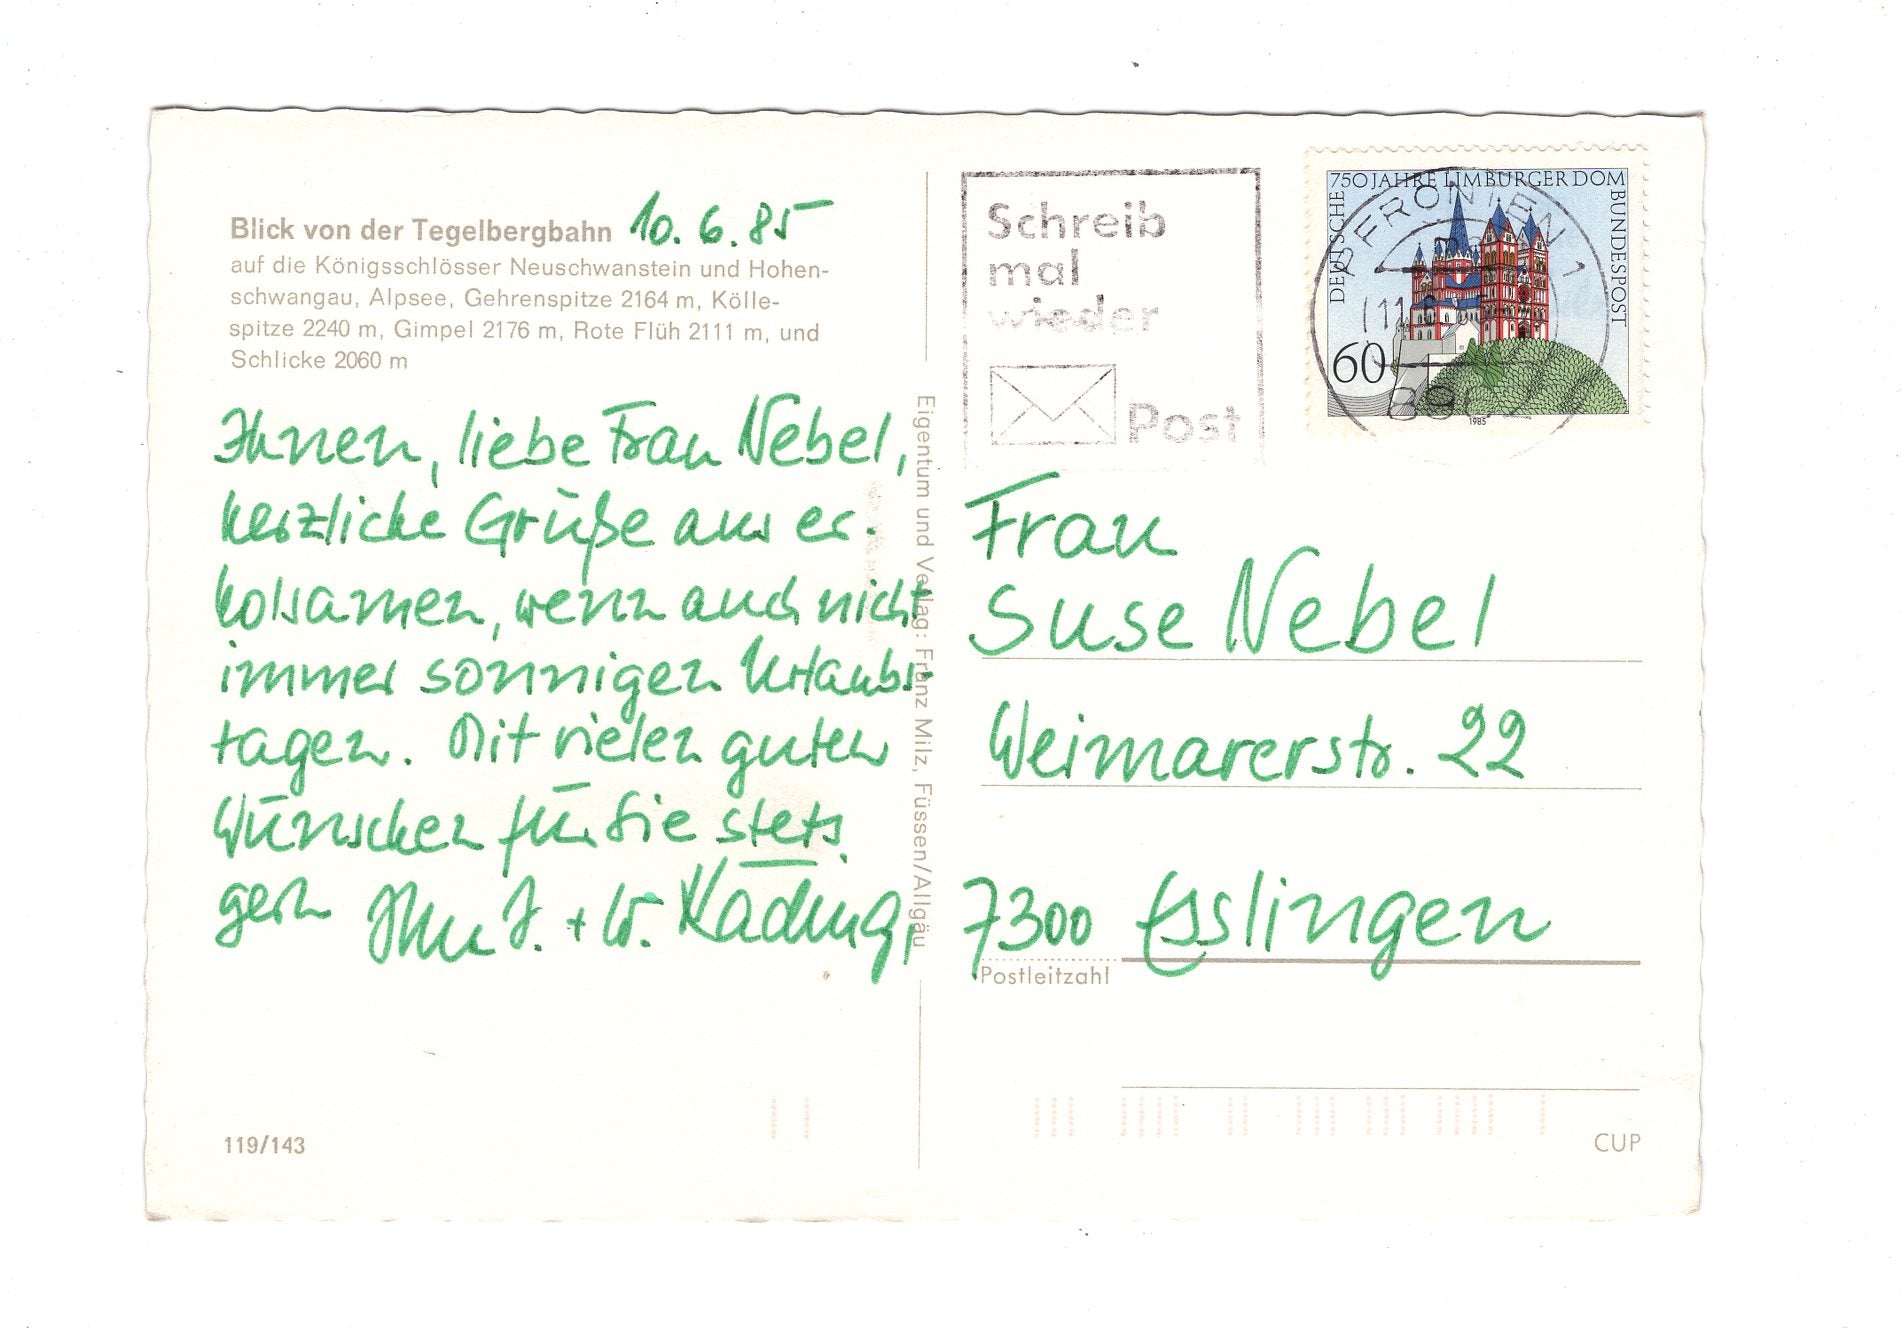 Blick von der Tegelbergbahn 10.6.85
auf die Königsschlösser Neuschwanstein und Hohen-
schwangau, Alpsee, Gehrenspitze 2164 m, Kölle-
spitze 2240 m, Gimpel 2176 m, Rote Flüh 2111 m, und
Schlicke 2060 m
Ihnen, liebe Frau Nebel,
herzliche Grüße aus er-
holsamen, wenn auch nicht
immer sonnigen Urlaubs-
tagen. Mit vielen guten
Wünschen für Sie stets
gern Ihre J. + W. Käding
119/143
Eigentum und Verlag: Franz Milz, Füssen/Allgäu
Schreib
mal
wieder
Post
750 JAHRE LIMBURGER DOM
DEUTSCHE
BUNDESPOST
60
1985
PFRONTEN 1
Frau
Suse Nebel
Weimarerstr. 22
7300 Esslingen
Postleitzahl
CUP